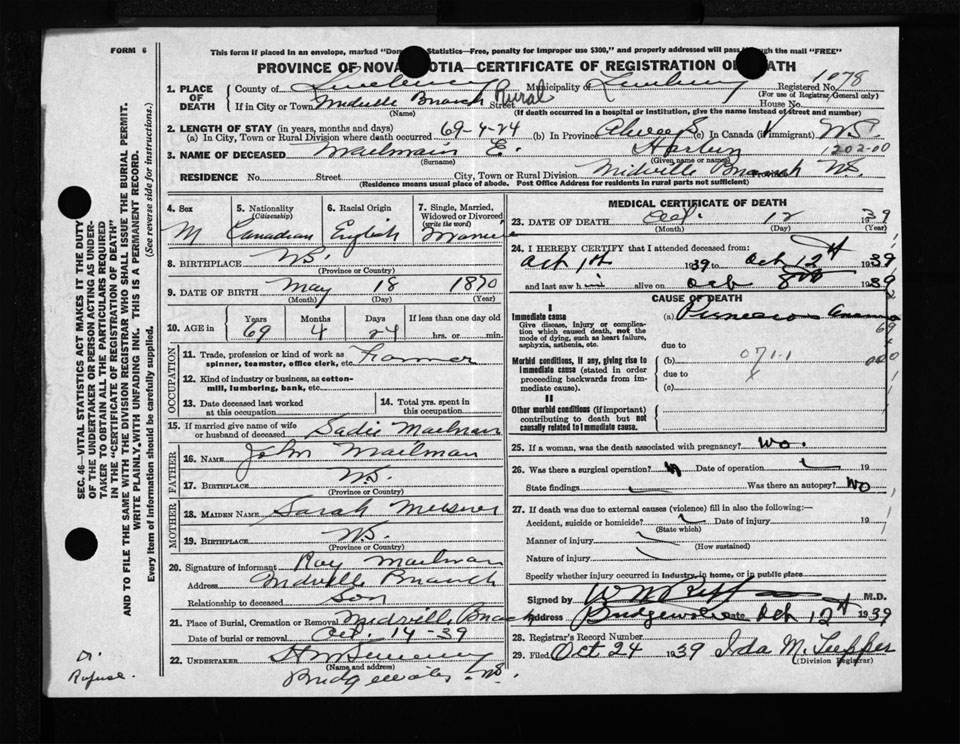 FORM 6
This form if placed in an envelope, marked "Dom Statistics—Free, penalty for improper use $300," and properly addressed will pass through the mail "FREE"
PROVINCE OF NOVA SCOTIA—CERTIFICATE OF REGISTRATION OF DEATH
1. PLACE OF DEATH County of Lunenburg Municipality of Lunenburg Registered No. 1078
(For use of Registrar General only)
If in City or Town Midville Branch Rural Street House No.
(Name) (If death occurred in a hospital or institution, give the name instead of street and number)
2. LENGTH OF STAY (in years, months and days)
(a) In City, Town or Rural Division where death occurred 69-4-24 (b) In Province Always (c) In Canada (if immigrant) N.S.
3. NAME OF DECEASED Mailman E. Harley 1202-00
(Surname) (Given name or names)
RESIDENCE No. Street City, Town or Rural Division Midville Branch Province N.S.
(Residence means usual place of abode. Post Office Address for residents in rural parts not sufficient)
4. Sex M
5. Nationality (Citizenship) Canadian
6. Racial Origin English
7. Single, Married, Widowed or Divorced (write the word) Married
8. BIRTHPLACE N.S.
(Province or Country)
9. DATE OF BIRTH May 18 1870
(Month) (Day) (Year)
10. AGE in Years Months Days If less than one day old
69 4 24 hrs. or min.
OCCUPATION
11. Trade, profession or kind of work as spinner, teamster, office clerk, etc. Farmer
12. Kind of industry or business, as cotton-mill, lumbering, bank, etc.
13. Date deceased last worked at this occupation
14. Total yrs. spent in this occupation
15. If married give name of wife or husband of deceased Sadie Mailman
FATHER
16. Name John Mailman
17. Birthplace N.S.
(Province or Country)
MOTHER
18. Maiden Name Sarah Meisner
19. Birthplace N.S.
(Province or Country)
20. Signature of informant Roy Mailman
Address Midville Branch
Relationship to deceased Son
21. Place of Burial, Cremation or Removal Midville Branch
Date of burial or removal Oct. 14-39
22. UNDERTAKER
(Name and address)
Bridgewater N.S.
MEDICAL CERTIFICATE OF DEATH
23. DATE OF DEATH Oct. 12 1939
(Month) (Day) (Year)
24. I HEREBY CERTIFY that I attended deceased from:
Oct 1st 1939 to Oct 12th 1939
and last saw him alive on Oct 8th 1939
CAUSE OF DEATH
I
Immediate cause
Give disease, injury or complication which caused death, not the mode of dying, such as heart failure, asphyxia, asthenia, etc.
(a) Pernicious anaemia
due to
Morbid conditions, if any, giving rise to immediate cause (stated in order proceeding backwards from immediate cause).
(b) 071-1
due to
(c)
II
Other morbid conditions (if important) contributing to death but not causally related to immediate cause.
25. If a woman, was the death associated with pregnancy? No.
26. Was there a surgical operation? Date of operation 19
State findings Was there an autopsy? No
27. If death was due to external causes (violence) fill in also the following:—
Accident, suicide or homicide? Date of injury 19
(State which)
Manner of injury
(How sustained)
Nature of injury
Specify whether injury occurred in industry, in home, or in public place
Signed by M.D.
Address Bridgewater Date Oct 12th 1939
28. Registrar's Record Number
29. Filed Oct 24 1939 Ida M. Tupper
(Division Registrar)
SEC. 46—VITAL STATISTICS ACT MAKES IT THE DUTY
OF THE UNDERTAKER OR PERSON ACTING AS UNDER-
TAKER TO OBTAIN ALL THE PARTICULARS REQUIRED
IN THE "CERTIFICATE OF REGISTRATION OF DEATH"
AND TO FILE THE SAME WITH THE DIVISION REGISTRAR WHO SHALL ISSUE THE BURIAL PERMIT.
WRITE PLAINLY, WITH UNFADING INK. THIS IS A PERMANENT RECORD.
Every item of information should be carefully supplied. (See reverse side for instructions.)